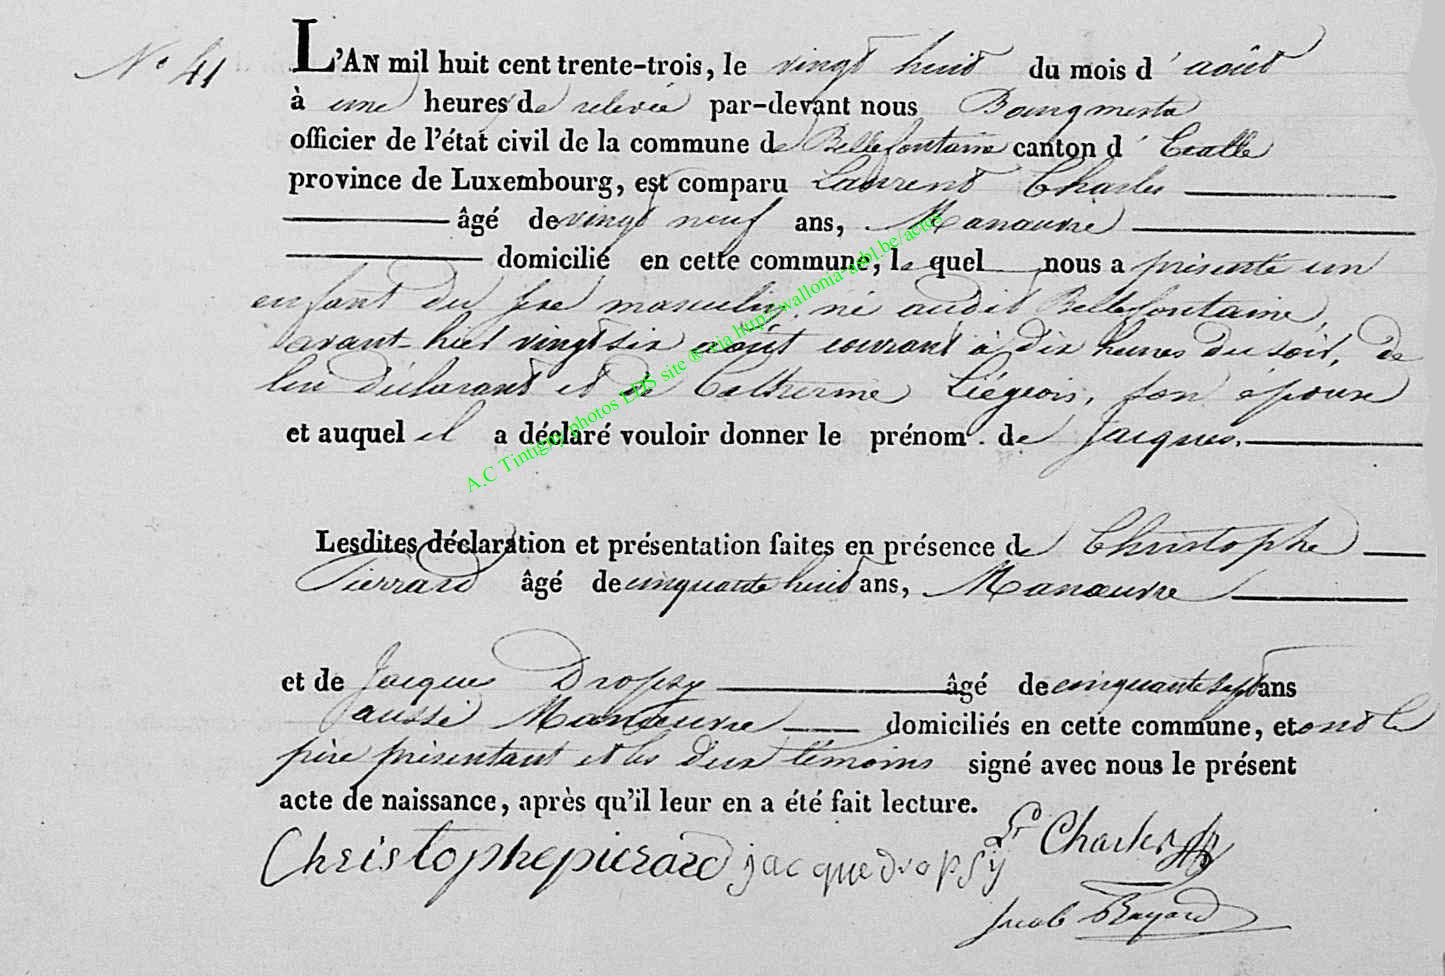 N° 41
L'AN mil huit cent trente-trois, le vingt huit du mois d'août
à une heures de relevée par-devant nous Bourgmestre
officier de l'état civil de la commune de Bellefontaine canton d'Etalle
province de Luxembourg, est comparu Laurent Charles
âgé de vingt neuf ans, Manœuvre
domicilié en cette commune, le quel nous a présenté un
enfant du sexe masculin, né audit Bellefontaine,
avant-hier vingt six août courant à dix heures du soir, de
lui déclarant et de Catherine Liégeois, son épouse
et auquel il a déclaré vouloir donner le prénom de Jacques.
Lesdites déclaration et présentation faites en présence de Christophe
Pierrard âgé de cinquante huit ans, Manœuvre
et de Jacques Dropsy âgé de cinquante sept ans
aussi Manœuvre domiciliés en cette commune, et ont le
père présentant et les deux témoins signé avec nous le présent
acte de naissance, après qu'il leur en a été fait lecture.
Christophe pierard jacque dropsy Lt Charles
Jacob Bayard
A.C Tintigny photos EHS site ® via http://wallonia-asbl.be/actes